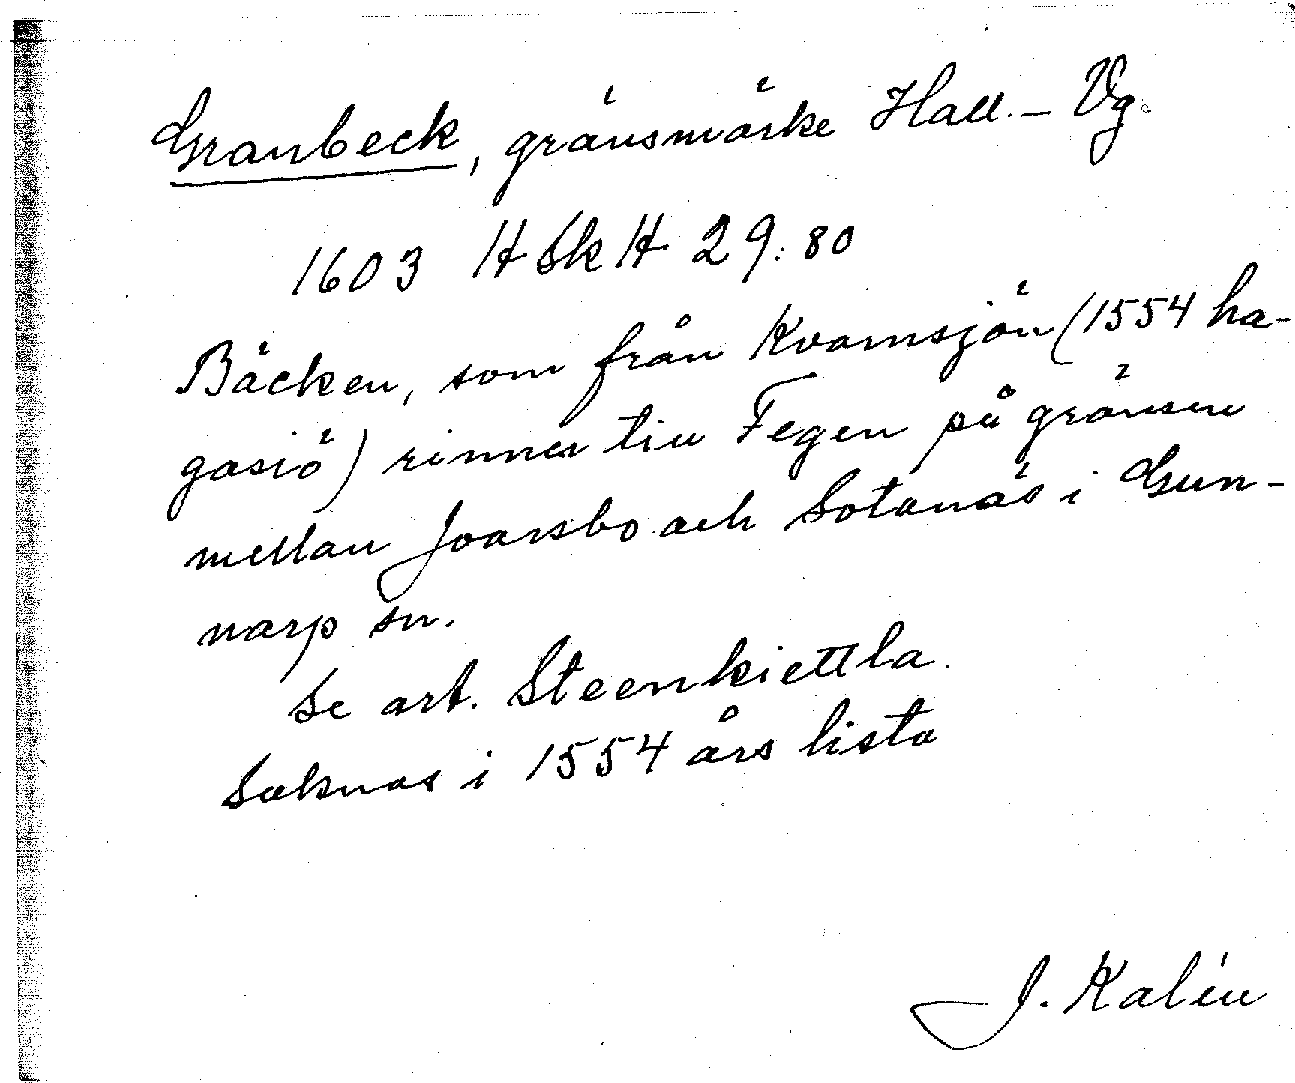 Granbeck, gränsmärke Hall. – Vg.
1603 HSkH 29:80
Bäcken, som från Kvarnsjön (1554 ha-
gasiö) rinner till Fegen på gränsen
mellan Joarsbo och Sotanäs i Gun-
narp sn.
Se art. Steenkiettla.
Saknas i 1554 års lista
J. Kalén